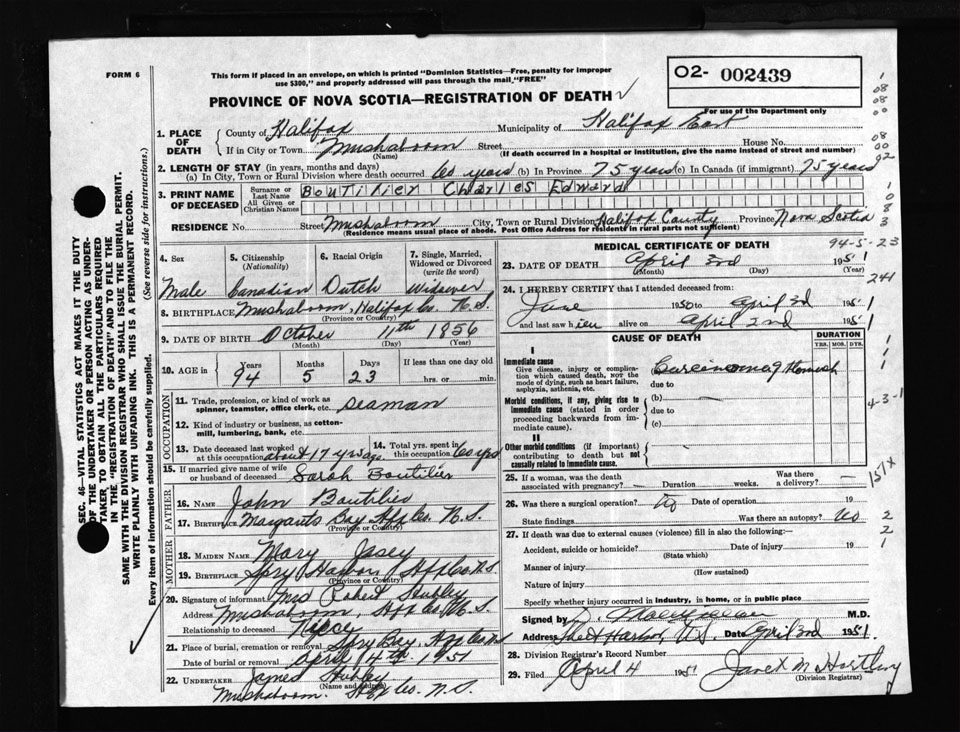 FORM 6
This form if placed in an envelope, on which is printed "Dominion Statistics—Free, penalty for improper
use $300," and properly addressed will pass through the mail, "FREE"
O2- 002439
For use of the Department only
PROVINCE OF NOVA SCOTIA—REGISTRATION OF DEATH
1. PLACE OF DEATH
County of Halifax Municipality of Halifax East
If in City or Town Mushaboom Street House No.
(Name) (If death occurred in a hospital or institution, give the name instead of street and number)
2. LENGTH OF STAY (in years, months and days)
(a) In City, Town or Rural Division where death occurred 60 years (b) In Province 75 years (c) In Canada (if immigrant) 75 years
3. PRINT NAME OF DECEASED
Surname or Last Name
All Given or Christian Names
Boutilier Charles Edward
RESIDENCE No. Street Mushaboom City, Town or Rural Division Halifax County Province Nova Scotia
(Residence means usual place of abode. Post Office Address for residents in rural parts not sufficient)
4. Sex
Male
5. Citizenship (Nationality)
Canadian
6. Racial Origin
Dutch
7. Single, Married, Widowed or Divorced (write the word)
Widower
8. BIRTHPLACE Mushaboom, Halifax Co. N.S.
(Province or Country)
9. DATE OF BIRTH October 11th 1856
(Month) (Day) (Year)
10. AGE in Years Months Days If less than one day old
94 5 23 hrs. or min.
OCCUPATION
11. Trade, profession, or kind of work as
spinner, teamster, office clerk, etc. Seaman
12. Kind of industry or business, as cotton-
mill, lumbering, bank, etc.
13. Date deceased last worked
at this occupation about 17 yrs ago
14. Total yrs. spent in
this occupation 60 yrs
15. If married give name of wife
or husband of deceased Sarah Boutilier
FATHER
16. NAME John Boutilier
17. BIRTHPLACE Margarets Bay Hfx Co. N.S.
(Province or Country)
MOTHER
18. MAIDEN NAME Mary
19. BIRTHPLACE Spry Harbour Hfx Co N.S.
(Province or Country)
20. Signature of informant Mrs Robert Hubley
Address Mushaboom, Hfx Co. N.S.
Relationship to deceased Niece
21. Place of burial, cremation or removal Spry Bay, Hfx Co NS
Date of burial or removal April 4th 1951
22. UNDERTAKER James Hubley
(Name and address)
Mushaboom. Hfx Co. N.S.
MEDICAL CERTIFICATE OF DEATH
94-5-23
23. DATE OF DEATH April 3rd 1951
(Month) (Day) (Year)
24. I HEREBY CERTIFY that I attended deceased from:
June 1950 to April 3rd 1951
and last saw him alive on April 2nd 1951
241
CAUSE OF DEATH
DURATION
YRS. MOS. DYS.
I
Immediate cause
Give disease, injury or complica-
tion which caused death, not the
mode of dying, such as heart failure,
asphyxia, asthenia, etc.
Carcinoma of Stomach
due to
Morbid conditions, if any, giving rise to
immediate cause (stated in order
proceeding backwards from im-
mediate cause).
(b)
due to
(c)
4-3-1
II
Other morbid conditions (if important)
contributing to death but not
causally related to immediate cause.
25. If a woman, was the death
associated with pregnancy? — Duration weeks. Was there a delivery? —
151X
26. Was there a surgical operation? No Date of operation 19
State findings Was there an autopsy? No
27. If death was due to external causes (violence) fill in also the following:
Accident, suicide or homicide? Date of injury 19
(State which)
Manner of injury
(How sustained)
Nature of injury
Specify whether injury occurred in industry, in home, or in public place
Signed by M.D.
Address Sheet Harbour, N.S. Date April 3rd 1951.
28. Division Registrar's Record Number
29. Filed April 4 1951 Janet M Hartling
(Division Registrar)
SEC. 46—VITAL STATISTICS ACT MAKES IT THE DUTY
OF THE UNDERTAKER OR PERSON ACTING AS UNDER-
TAKER TO OBTAIN ALL THE PARTICULARS REQUIRED
IN THE "REGISTRATION OF DEATH" AND TO FILE THE
SAME WITH THE DIVISION REGISTRAR WHO SHALL ISSUE THE BURIAL PERMIT.
WRITE PLAINLY WITH UNFADING INK. THIS IS A PERMANENT RECORD.
Every item of information should be carefully supplied. (See reverse side for instructions.)